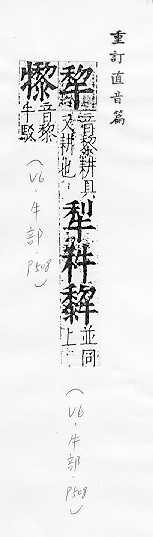 重訂直音篇
犂 音黎耕具
又耕也
犁 並同
上
(V6.牛部.P508)
音黎
牛駁
(V6.牛部.P508)